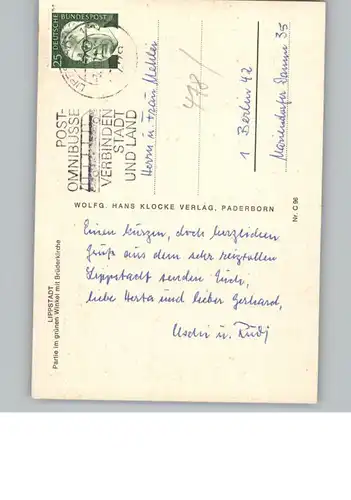 25
DEUTSCHE
BUNDESPOST
LIPPSTADT
POST-
OMNIBUSSE
VERBINDEN
STADT
UND LAND
Herrn u Frau Mehler
1 Berlin 42
Mariendorfer Damm 35
418/
WOLFG. HANS KLOCKE VERLAG, PADERBORN
Nr. C 96
LIPPSTADT
Partie im grünen Winkel mit Brüderkirche
Einen kurzen, doch herzlichen
Gruß aus dem sehr reizvollen
Lippstadt senden Euch,
liebe Herta und lieber Gerhard,
Uschi u. Rudi